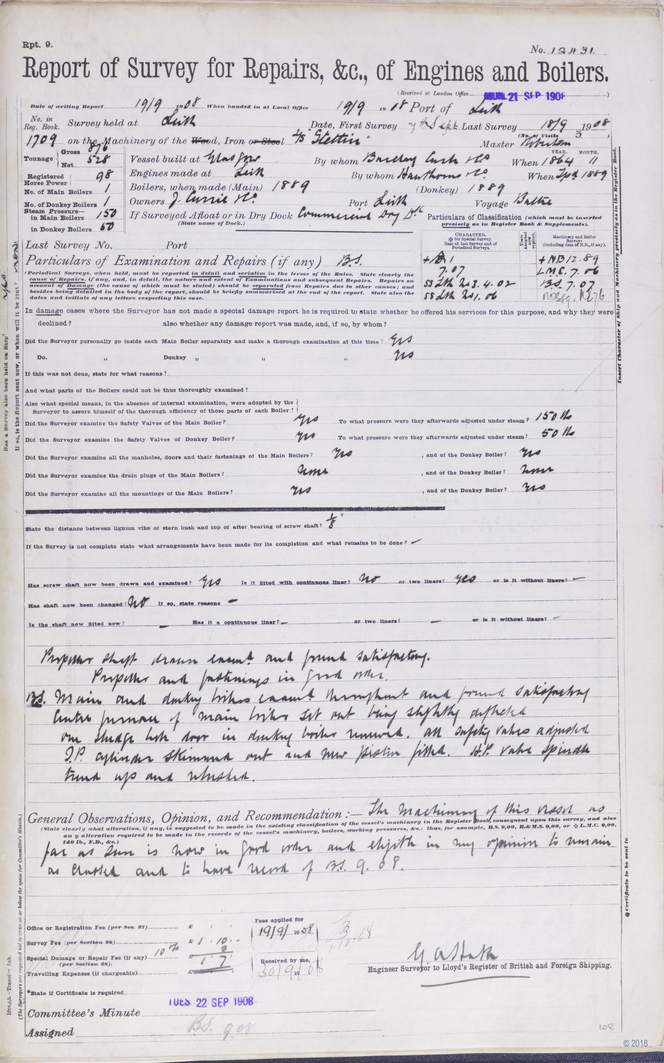 Rpt. 9.
No. 12431.
Report of Survey for Repairs, &c., of Engines and Boilers.
(Received at London Office MON. 21 SEP 1908)
Date of writing Report 19/9 1908 When handed in at Local Office 19/9 1908 Port of Leith
No. in Reg. Book. Survey held at Leith Date, First Survey 7th Sept Last Survey 18/9 1908
(No. of Visits 3)
1709 on the Machinery of the Wood, Iron or Steel S/S "Stettin" Master
Tonnage Gross 876 Net 528 Vessel built at Glasgow By whom Barclay Curle & Co When 1864 YEAR. MONTH. 11
Registered Horse Power 98 Engines made at Leith By whom Hawthorns & Co When 1889
No. of Main Boilers 1 Boilers, when made (Main) 1889 (Donkey) 1889
No. of Donkey Boilers 1 Owners J. Currie & Co Port Leith Voyage Baltic
Steam Pressure— in Main Boilers 150 If Surveyed Afloat or in Dry Dock Commercial Dry Dk
(State name of Dock.)
in Donkey Boilers 50
Particulars of Classification (which must be inserted precisely as in Register Book & Supplements).
Last Survey No. Port
Particulars of Examination and Repairs (if any) B.S.
7.07
SS Lth No 3. 4.02
SS Lth No 1. 06
+ N.B. 12.89
L.M.C. 7.06
B.S. 7.07
(Periodical Surveys, when held, must be reported in detail and seriatim in the terms of the Rules. State clearly the cause of Repairs, if any, and, in detail, the nature and extent of Examinations and subsequent Repairs. Repairs on account of Damage (the cause of which must be stated) should be separated from Repairs due to other causes; and besides being detailed in the body of the report, should be briefly summarised at the end of the report. State also the dates and initials of any letters respecting this case.
In damage cases where the Surveyor has not made a special damage report he is required to state whether he offered his services for this purpose, and why they were
declined? also whether any damage report was made, and, if so, by whom?
Did the Surveyor personally go inside each Main Boiler separately and make a thorough examination at this time? Yes
Do. „ Donkey „ „ „ No
If this was not done, state for what reasons?
And what parts of the Boilers could not be thus thoroughly examined?
Also what special means, in the absence of internal examination, were adopted by the Surveyor to assure himself of the thorough efficiency of those parts of each Boiler?
Did the Surveyor examine the Safety Valves of the Main Boiler? Yes To what pressure were they afterwards adjusted under steam? 150 lbs
Did the Surveyor examine the Safety Valves of Donkey Boiler? Yes To what pressure were they afterwards adjusted under steam? 50 lbs
Did the Surveyor examine all the manholes, doors and their fastenings of the Main Boilers? Yes , and of the Donkey Boiler? Yes
Did the Surveyor examine the drain plugs of the Main Boilers? None , and of the Donkey Boiler? None
Did the Surveyor examine all the mountings of the Main Boilers? Yes , and of the Donkey Boiler? Yes
State the distance between lignum vitæ or stern bush and top of after bearing of screw shaft? 1/8"
If the Survey is not complete state what arrangements have been made for its completion and what remains to be done? -
Has screw shaft now been drawn and examined? Yes Is it fitted with continuous liner? No or two liners? Yes or is it without liners? -
Has shaft now been changed? No If so, state reasons -
Is the shaft now fitted new? - Has it a continuous liner? - or two liners? - or is it without liners? -
Propeller shaft drawn examd and found satisfactory.
Propeller and fastenings in good order.
B.S. Main and donkey boilers examd throughout and found satisfactory
Centre furnace of main boiler set out being slightly deflected
one sludge hole door in donkey boiler renewed. All safety valves adjusted
I.P. cylinder skimmed out and new piston fitted. H.P. valve spindle
trued up and rebushed.
General Observations, Opinion, and Recommendation:— The machinery of this vessel as
(State clearly what alteration, if any, is suggested to be made in the existing classification of the vessel's machinery in the Register Book, consequent upon this survey, and also any alteration required to be made in the records of the vessel's machinery, boilers, working pressures, &c.: thus, for example, B.S. 9,00, B.&M.S. 9,00, or L.M.C. 9,00, 140 lb., F.D., &c.)
far as seen is now in good order and eligible in my opinion to remain
as classed and to have record of B.S. 9.08.
Office or Registration Fee (per Sec. 27) £
Survey Fee (per Section 28) £ 1 . 10 .
Special Damage or Repair Fee (if any) (per Section 28).
Travelling Expenses (if chargeable)
Fees applied for 19/9/1908
Received by me, 30/9/08
Engineer Surveyor to Lloyd's Register of British and Foreign Shipping.
*State if Certificate is required
Committee's Minute TUES. 22 SEP 1908
Assigned B.S. 9.08
108
© 2018